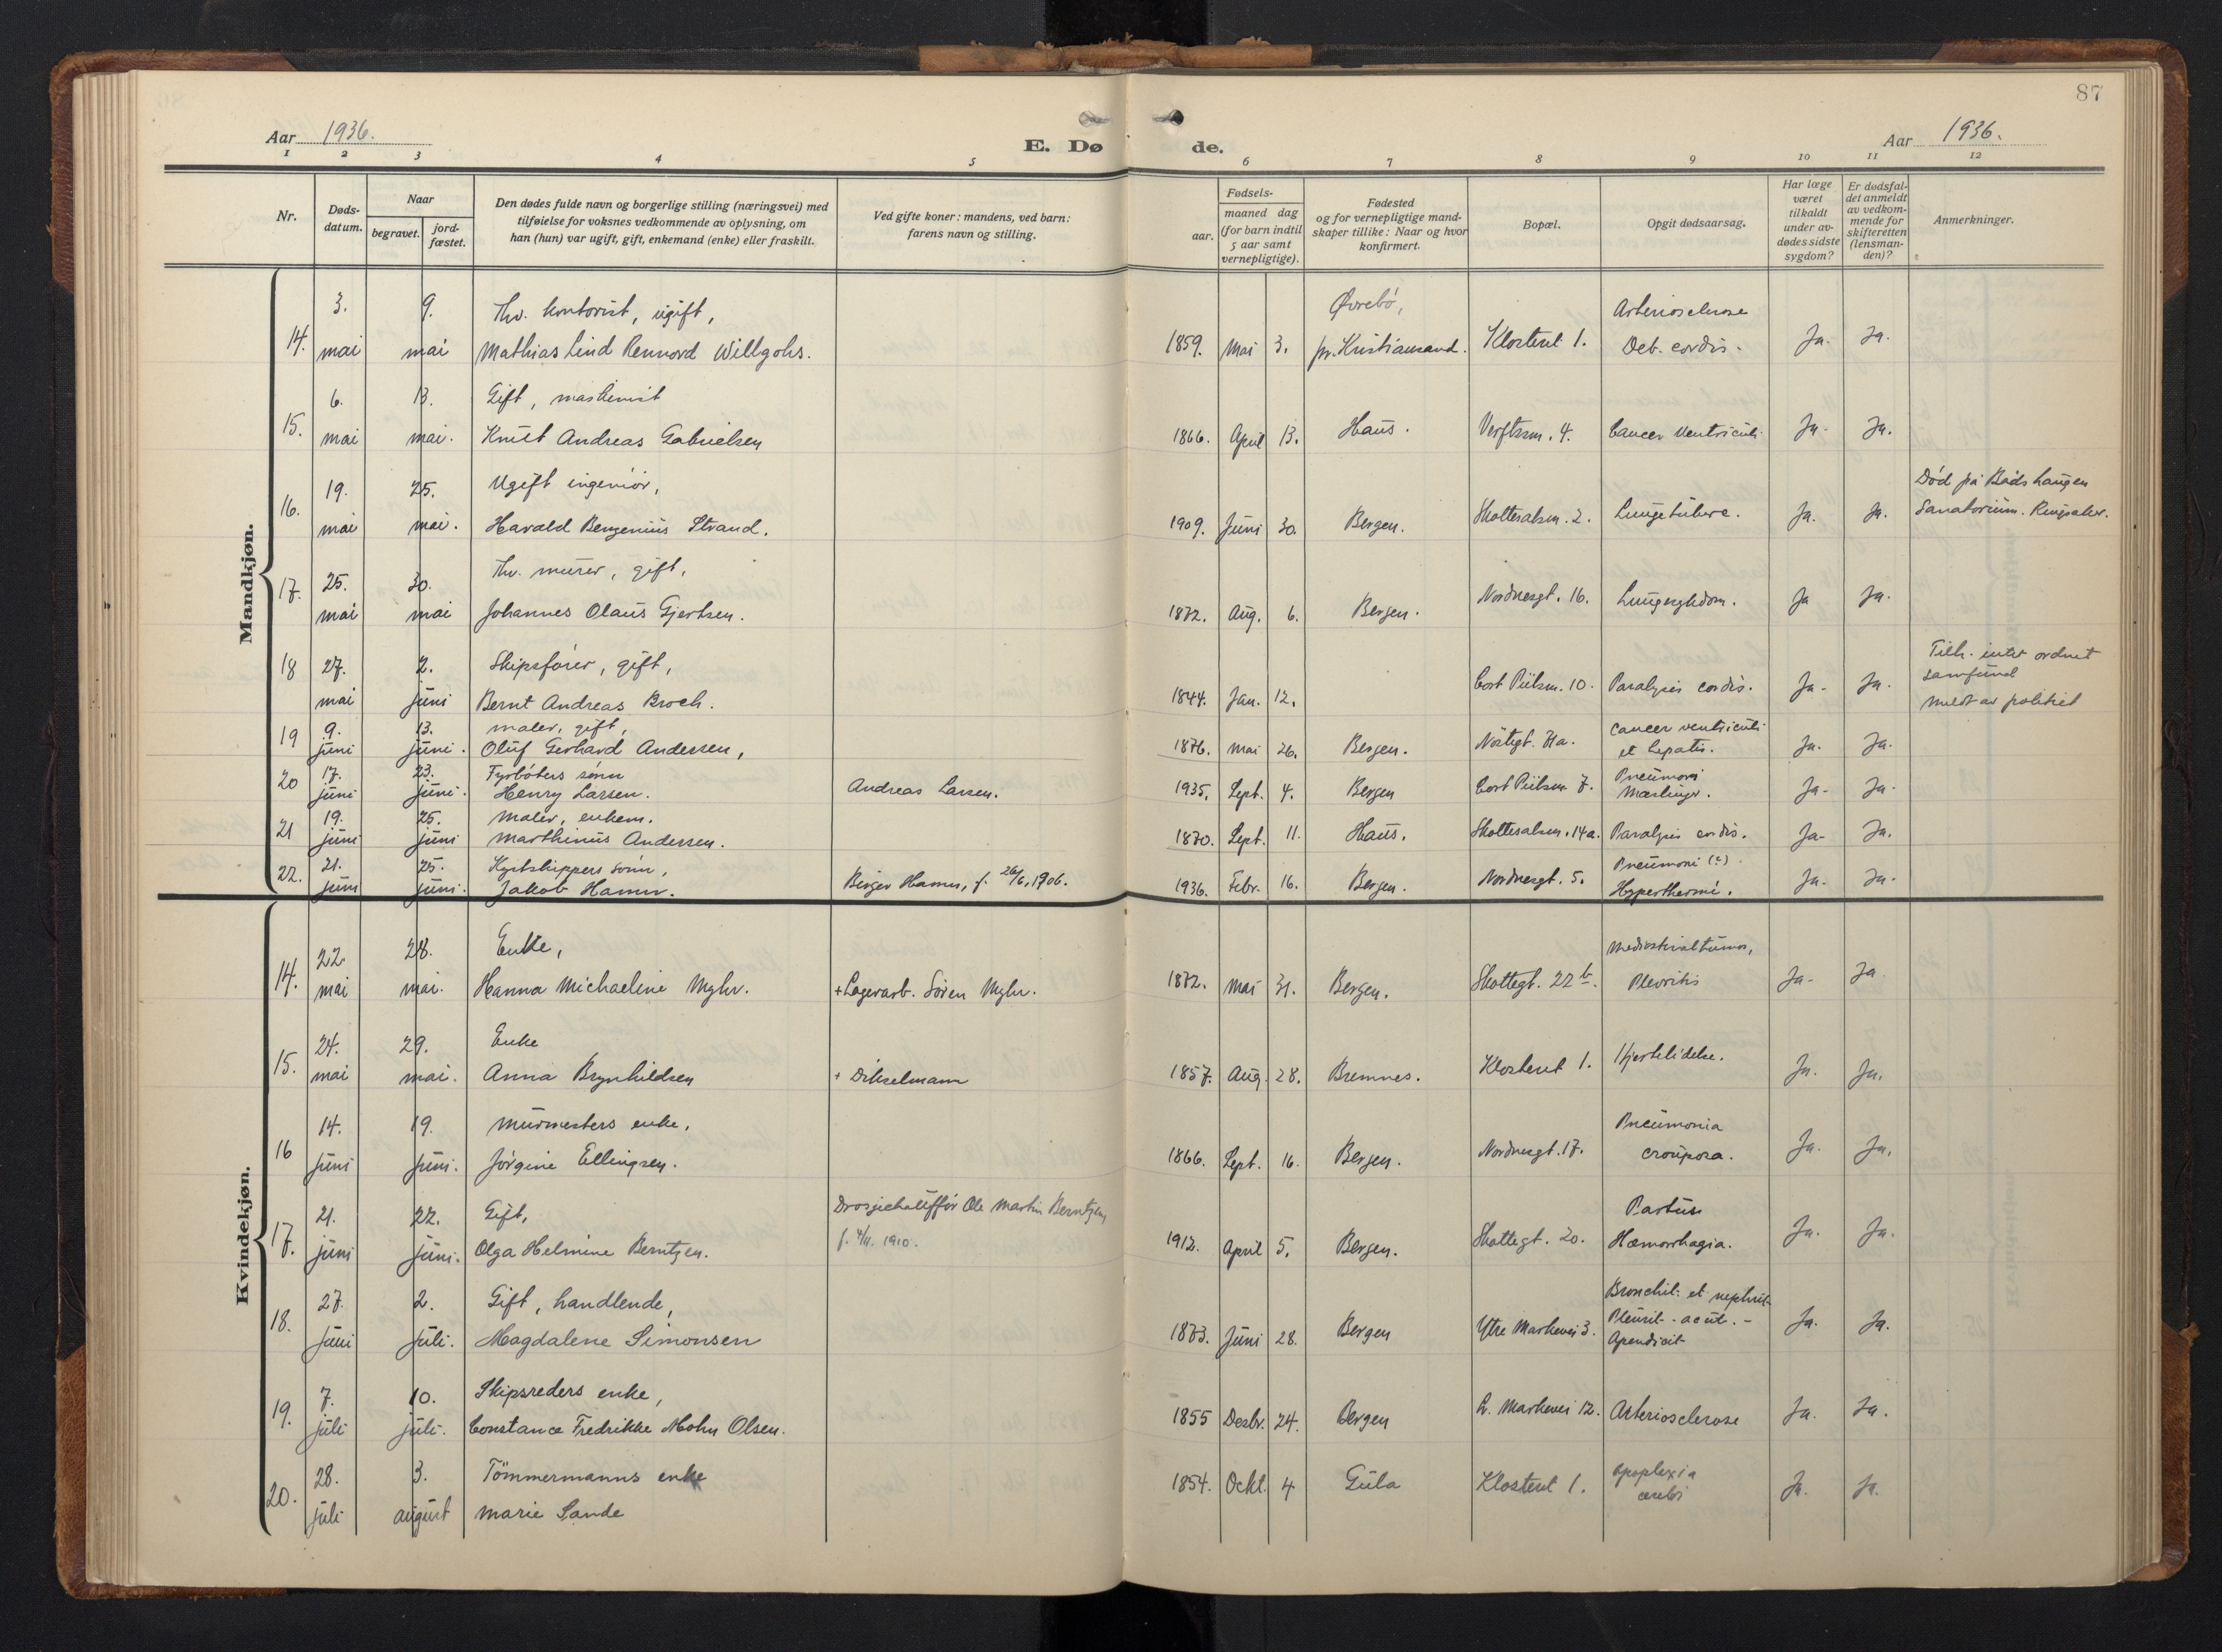 87
Aar 1936.
E. Døde.
Aar 1936.
1 2 3 4 5 6 7 8 9 10 11 12
Nr.
Døds-
datum.
Naar
begravet.
jord-
fæstet.
Den dødes fulde navn og borgerlige stilling (næringsvei) med
tilføielse for voksnes vedkommende av oplysning, om
han (hun) var ugift, gift, enkemand (enke) eller fraskilt.
Ved gifte koner: mandens, ved barn:
farens navn og stilling.
Fødsels-
aar.
maaned dag
(for barn indtil
5 aar samt
vernepligtige).
Fødested
og for vernepligtige mand-
skaper tillike: Naar og hvor
konfirmert.
Bopæl.
Opgit dødsaarsag.
Har læge
været
tilkaldt
under av-
dødes sidste
sygdom?
Er dødsfal-
det anmeldt
av vedkom-
mende for
skifteretten
(lensman-
den)?
Anmerkninger.
Mandkjøn.
3. 9. Fhv. kontorist, ugift, Øvrebö, Arteriosclerose
14. mai mai Mathias Lind Rennord Willgohs. 1859. Mai 3. pr. Kristiansand. Klosteret 1. Deb. cordis. Ja. Ja.
6. 13. Gift, maskinist
15. mai mai. Knut Andreas Gabrielsen 1866. April 13. Haus. Verftsm. 4. Cancer Ventriculi Ja. Ja.
19. 25. Ugift ingeniör, Död på
16. mai mai. Harald Bergenius Strand. 1909. Juni 30. Bergen. Skottesalm. 2. Lungetuberc. Ja. Ja. Sanatorium.
Fhv. murer, gift,
17. 25. 30.
mai mai Johannes Olaus Gjertsen. 1872. Aug. 6. Bergen. Nordnesgt. 16. Lungesykdom. Ja Ja.
18 27. 2. Skipsförer, gift, Tilh. intet ordnet
samfund
mai juni Bernt Andreas Broch. 1844. Jan. 12. Cort Piilsm. 10. Paralysis cordis. Ja. Ja. meldt av politiet
19 9. 13. maler, gift, Cancer ventriculi
juni juni. Oluf Gerhard Andersen, 1876. mai 26. Bergen. Nöstegt. et hepatis. Ja. Ja.
20 17. 23. Fyrböters sönn Pneumoni
juni juni. Henry Larsen. Andreas Larsen. 1935. Sept. 4. Bergen Cort Piilsm. 7. Mæslinger. Ja. Ja.
21 19. 25. Maler, enkem.
juni juni Marthinus Andersen. 1870. Sept. 11. Haus. Skottesalm. 14a. Paralysis cordis. Ja. Ja.
22. 21. 25. Kystskippers sönn, Pneumoni (?)
juni juni. Jakob Hamre. Birger Hamre, f. 26/6. 1906. 1936. Febr. 16. Bergen. Nordnesgt. 5. Hyperthermi. Ja. Ja.
Kvindekjøn.
22. 28. Enke, Mediastinaltumor,
14. mai mai. Hanna Michaeline Myhr. + Lagerarb. Sören Myhr. 1872. Mai 31. Bergen. Skottegt. 22 b. Plevritis Ja. Ja
24. 29. Enke
15. mai mai. Anna Brynhildsen + Dikselmann 1857. Aug. 28. Bremnes. Klosteret 1. Hjertelidelse. Ja. Ja.
14. 19. Murmesters enke, Pneumonia
16 juni juni. Jörgine Ellingsen. 1866. Sept. 16. Bergen. Nordnesgt. 17. crouposa. Ja. Ja.
21. 22. Gift, Drosjechaufför Ole Martin Berntzen Partus
17. juni juni. Olga Helmine Berntzen. f. 4/11. 1910. 1912. April 5. Bergen. Skottegt. 20. Hæmorrhagia. Ja. Ja.
27. 2. Gift, handlende, Bronchit. et nephrit.
18. juni juli. Magdalene Simonsen 1873. Juni 28. Bergen Ytre Markevei 3. Pleurit. acut. - Ja. Ja.
Apendicit
7. 10. Skipsreders enke,
19. juli juli. Constance Fredrikke Mohn Olsen. 1855 Desbr. 24. Bergen L. Markevei 12. Arteriosclerose Ja. Ja.
28. 3. Tömmermanns enke apoplexia
20. juli august Marie Sande 1854. Ockt. 4 Gula Klosteret 1. cerebri Ja. Ja.